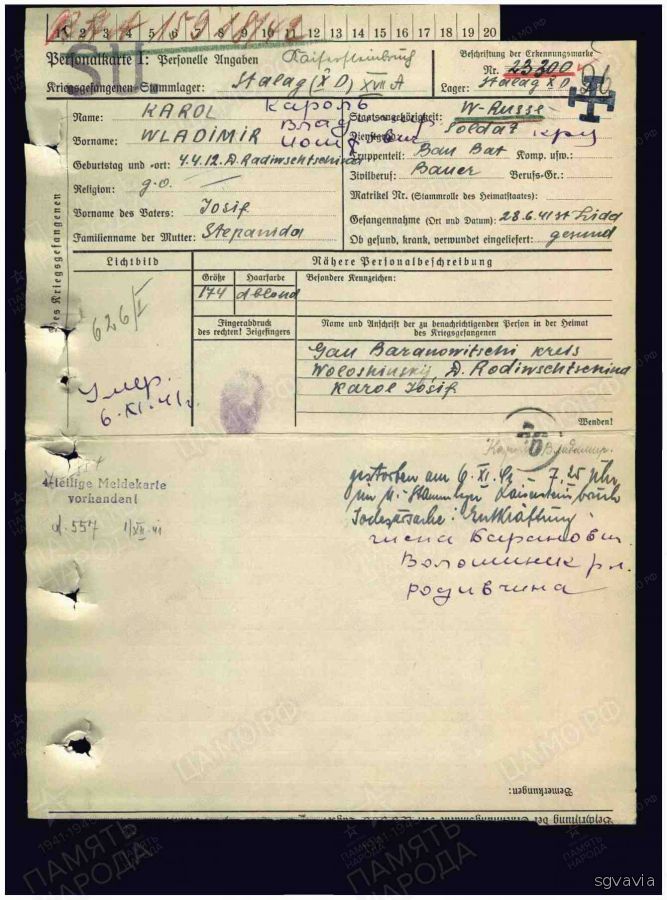 1 2 3 4 5 6 7 8 9 10 11 12 13 14 15 16 17 18 19 20
Personalkarte I: Personelle Angaben Kaisersteinbruch
Kriegsgefangenen-Stammlager: Stalag (X D) XVII A
Beschriftung der Erkennungsmarke
Nr. 23300
Lager: Stalag X D
Des Kriegsgefangenen
Name: KAROL Кароль
Vorname: WLADIMIR Влад
Geburtstag und -ort: 4.4.12. D. Radiwschtschina
Religion: g.o. —
Vorname des Vaters: Josif
Familienname der Mutter: Stepanida
Staatsangehörigkeit: W-Russe
Dienstgrad: Soldat
Truppenteil: Bau Bat Komp. usw.:
Zivilberuf: Bauer Berufs-Gr.:
Matrikel Nr. (Stammrolle des Heimatstaates):
Gefangennahme (Ort und Datum): 28.6.41 Lida
Ob gesund, krank, verwundet eingeliefert: gesund
Lichtbild
Nähere Personalbeschreibung
Größe Haarfarbe Besondere Kennzeichen:
174 dblond
Fingerabdruck
des rechten! Zeigefingers
Name und Anschrift der zu benachrichtigenden Person in der Heimat
des Kriegsgefangenen
Gau Baranowitschi Kreis
Woloshinsky D. Rodiwschtschina
Karol Josif
Wenden!
626/I
Умер.
6.XI.41г.
4-teilige Meldekarte
vorhanden!
d. 557 1/XII-41
Кароль Владимир.
gestorben am 6.XI.41 – 7.25 Uhr
im M.-Stammlager Kaisersteinbruch
Todesursache: Entkräftung
Баранович.
родивчина
Bemerkungen:
Beschriftung der Erkennungsmarke
ЦАМО РФ
1941-1945
ПАМЯТЬ
НАРОДА
sgvavia